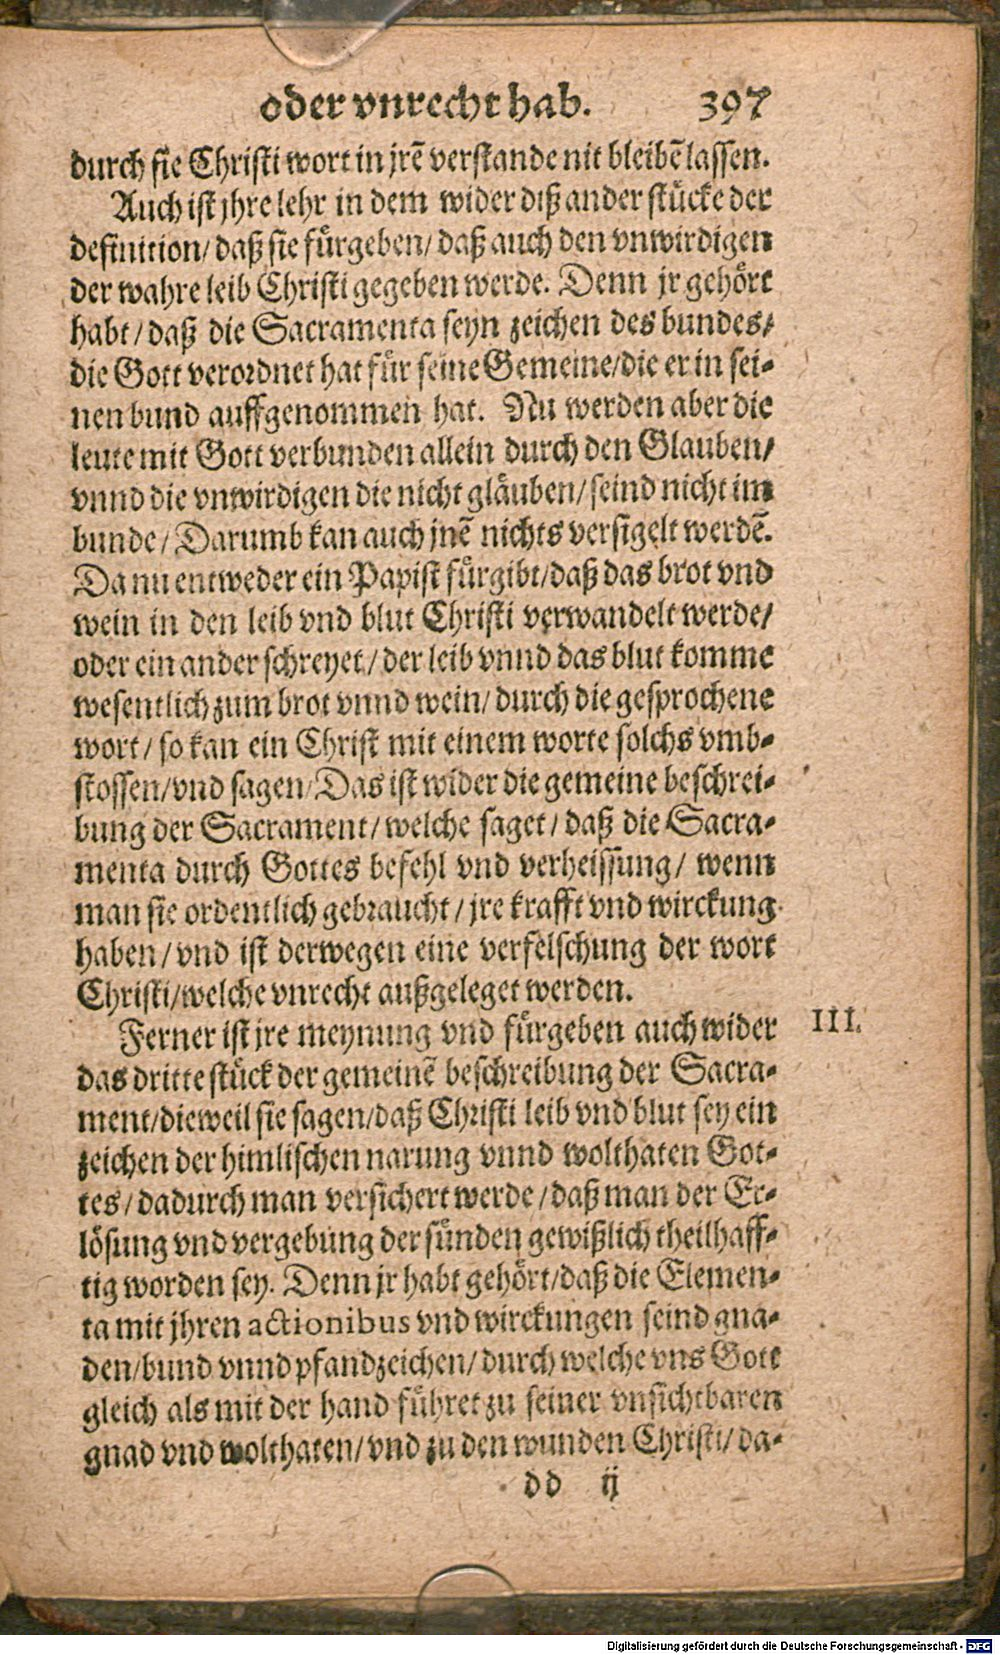 oder vnrecht hab. 397
durch sie Christi wort in jrē verstande nit bleibē lassen.
Auch ist jhre lehr in dem wider diß ander stücke der
definition/ daß sie fürgeben/ daß auch den vnwirdigen
der wahre leib Christi gegeben werde. Denn jr gehört
habt/ daß die Sacramenta seyn zeichen des bundes/
die Gott verordnet hat für seine Gemeine/ die er in sei-
nen bund auffgenommen hat. Nu werden aber die
leute mit Gott verbunden allein durch den Glauben/
vnnd die vnwirdigen die nicht gläuben/ seind nicht im
bunde/ Darumb kan auch jnē nichts versigelt werdē.
Da nu entweder ein Papist fürgibt/ daß das brot vnd
wein in den leib vnd blut Christi verwandelt werde/
oder ein ander schreyet/ der leib vnnd das blut komme
wesentlich zum brot vnnd wein/ durch die gesprochene
wort/ so kan ein Christ mit einem worte solchs vmb-
stossen/ vnd sagen/ Das ist wider die gemeine beschrei-
bung der Sacrament/ welche saget/ daß die Sacra-
menta durch Gottes befehl vnd verheissung/ wenn
man sie ordentlich gebraucht/ jre krafft vnd wirckung
haben/ vnd ist derwegen eine verfelschung der wort
Christi/ welche vnrecht außgeleget werden.
Ferner ist jre meynung vnd fürgeben auch wider III.
das dritte stück der gemeinē beschreibung der Sacra-
ment/ dieweil sie sagen/ daß Christi leib vnd blut sey ein
zeichen der himlischen narung vnnd wolthaten Got-
tes/ dadurch man versichert werde/ daß man der Er-
lösung vnd vergebung der sünden gewißlich theilhaff-
tig worden sey. Denn jr habt gehört/ daß die Elemen-
ta mit jhren actionibus vnd wirckungen seind gna-
den/ bund vnnd pfandzeichen/ durch welche vns Gott
gleich als mit der hand führet zu seiner vnsichtbaren
gnad vnd wolthaten/ vnd zu den wunden Christi/ da-
dd ij
Digitalisierung gefördert durch die Deutsche Forschungsgemeinschaft - DFG